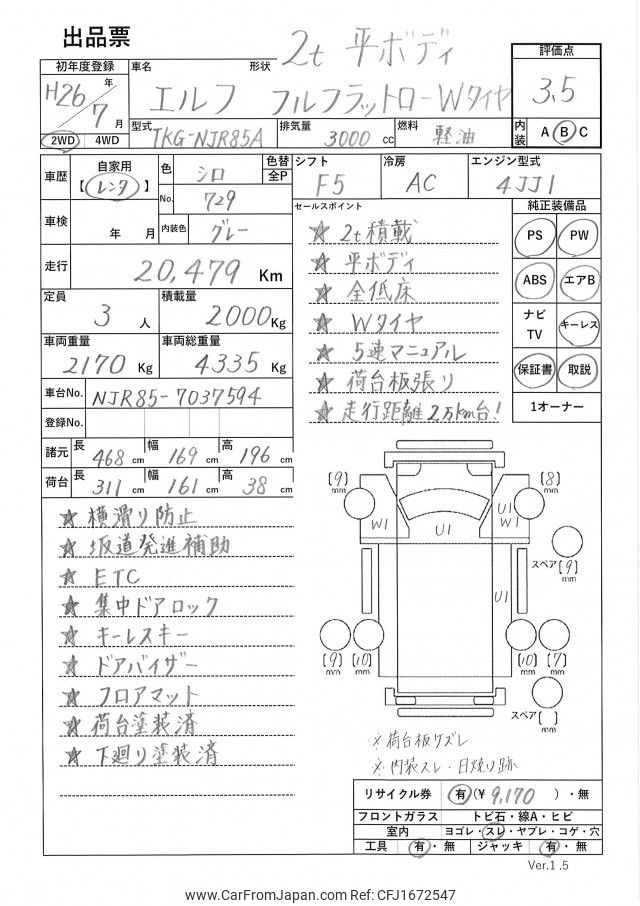 出品票
2t 平ボディ
初年度登録 車名 形状 評価点
H26年 エルフ フルフラットロー Wタイヤ 3.5
7月
2WD 4WD 型式 TKG-NJR85A 排気量 3000 cc 燃料 軽油 内装 A B C
車歴 自家用 色 シロ 色替 シフト 冷房 エンジン型式
【レンタ】 全P F5 AC 4JJ1
No. 729
セールスポイント 純正装備品
車検 年 月 内装色 グレー
☆ 2t積載 PS PW
走行 20,479 Km
☆ 平ボディ
☆ 全低床 ABS エアB
定員 3 人 積載量 2000 Kg
☆ Wタイヤ ナビ TV キーレス
車両重量 2170 Kg 車両総重量 4335 Kg
☆ 5速マニュアル
☆ 荷台板張り 保証書 取説
車台No. NJR85-7037594
☆ 走行距離2万km台! 1オーナー
登録No.
諸元 長 468 cm 幅 169 cm 高 196 cm
荷台 長 311 cm 幅 161 cm 高 38 cm
☆ 横滑り防止
☆ 坂道発進補助
☆ ETC
☆ 集中ドアロック
☆ キーレスキー
☆ ドアバイザー
☆ フロアマット
☆ 荷台塗装済
☆ 下廻り塗装済
(9) mm (8) mm
W1 U1 U1 W1
スペア (9) mm
U1
(9) mm (10) mm (10) mm (7) mm
スペア ( ) mm
※荷台板ケズレ
※内装スレ・日焼け跡
リサイクル券 有(¥ 9,170 )・無
フロントガラス トビ石・線A・ヒビ
室内 ヨゴレ・スレ・ヤブレ・コゲ・穴
工具 有・無 ジャッキ 有・無
Ver.1.5
www.CarFromJapan.com Ref: CFJ1672547